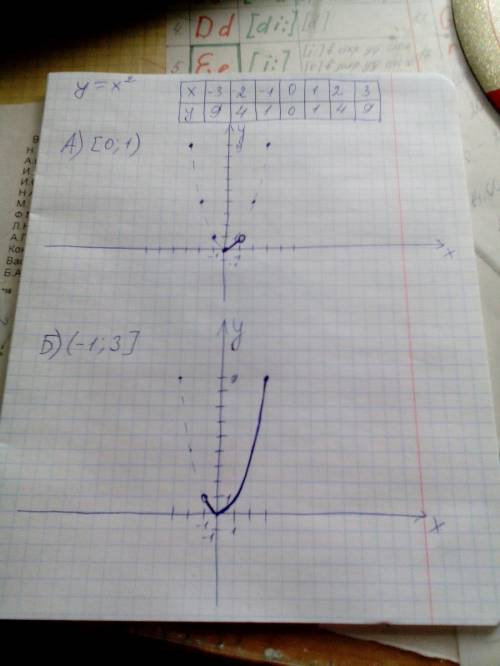 4 Dd [di:] [d]
5 Ee [i:]
y = x²
x -3 2 -1 0 1 2 3
y 9 4 1 0 1 4 9
А) [0;1)
y
9
-1 1
-1
x
Б) (-1;3]
y
9
1
-1 1
-1
x